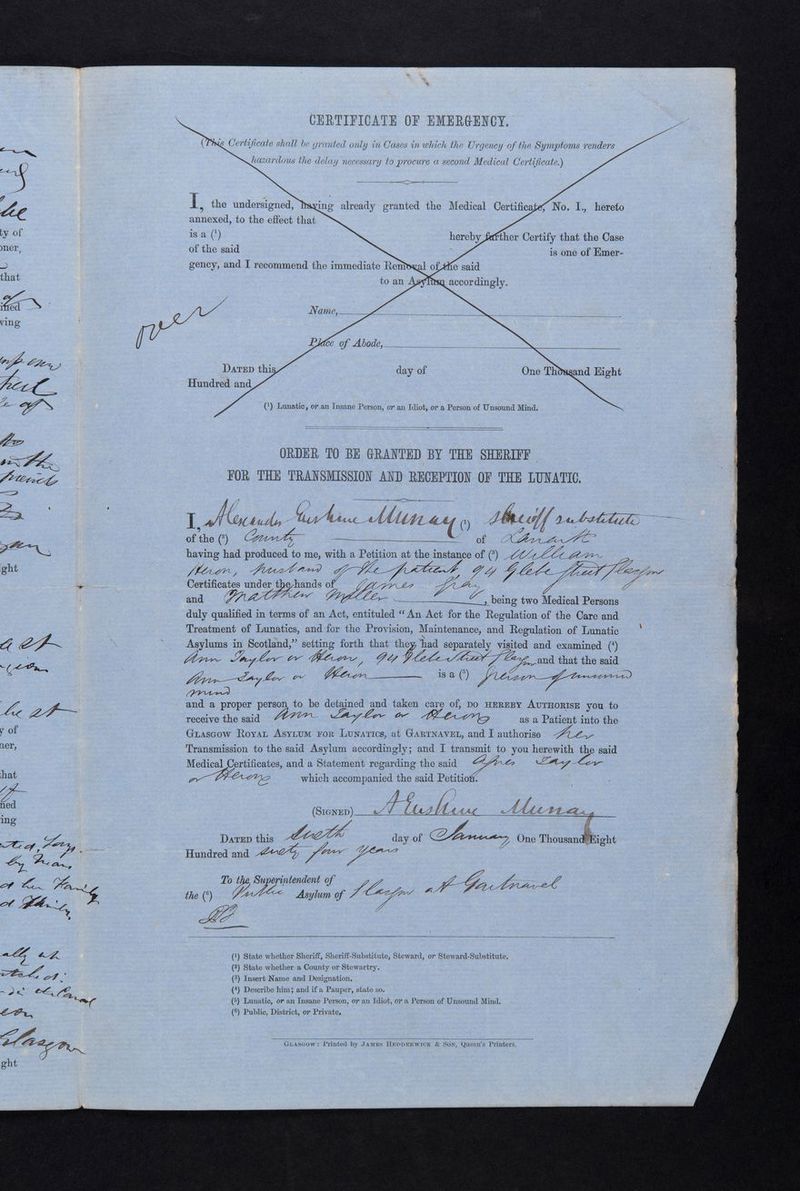 CERTIFICATE OF EMERGENCY.
(This Certificate shall be granted only in Cases in which the Urgency of the Symptoms renders
hazardous the delay necessary to procure a second Medical Certificate.)
I, the undersigned, having already granted the Medical Certificate, No. I., hereto
annexed, to the effect that
is a (¹) hereby further Certify that the Case
of the said is one of Emer-
gency, and I recommend the immediate Removal of the said
to an Asylum accordingly.
over
Name,
Place of Abode,
DATED this day of One Thousand Eight
Hundred and
(¹) Lunatic, or an Insane Person, or an Idiot, or a Person of Unsound Mind.
ORDER TO BE GRANTED BY THE SHERIFF
FOR THE TRANSMISSION AND RECEPTION OF THE LUNATIC.
I, Alexander Erskine Murray (¹) Sheriff substitute
of the (²) County of Lanark
having had produced to me, with a Petition at the instance of (³) William
Heron, husband of the patient 94 Glebe Street Glasgow
Certificates under the hands of James Gray
and Matthew Miller, being two Medical Persons
duly qualified in terms of an Act, entituled "An Act for the Regulation of the Care and
Treatment of Lunatics, and for the Provision, Maintenance, and Regulation of Lunatic
Asylums in Scotland," setting forth that they had separately visited and examined (⁴)
Ann Taylor or Heron, 94 Glebe Street Glasgow and that the said
Ann Taylor or Heron is a (⁵) person of unsound
mind
and a proper person to be detained and taken care of, DO HEREBY AUTHORISE you to
receive the said Ann Taylor or Heron as a Patient into the
GLASGOW ROYAL ASYLUM FOR LUNATICS, at GARTNAVEL, and I authorise her
Transmission to the said Asylum accordingly; and I transmit to you herewith the said
Medical Certificates, and a Statement regarding the said Agnes Taylor
or Heron which accompanied the said Petition.
(SIGNED) A Erskine Murray
DATED this Sixth day of January One Thousand Eight
Hundred and sixty four years
To the Superintendent of
the (⁶) Public Asylum of Glasgow at Gartnavel
(¹) State whether Sheriff, Sheriff-Substitute, Steward, or Steward-Substitute.
(²) State whether a County or Stewartry.
(³) Insert Name and Designation.
(⁴) Describe him; and if a Pauper, state so.
(⁵) Lunatic, or an Insane Person, or an Idiot, or a Person of Unsound Mind.
(⁶) Public, District, or Private.
GLASGOW: Printed by JAMES HEDDERWICK & SON, Queen's Printers.